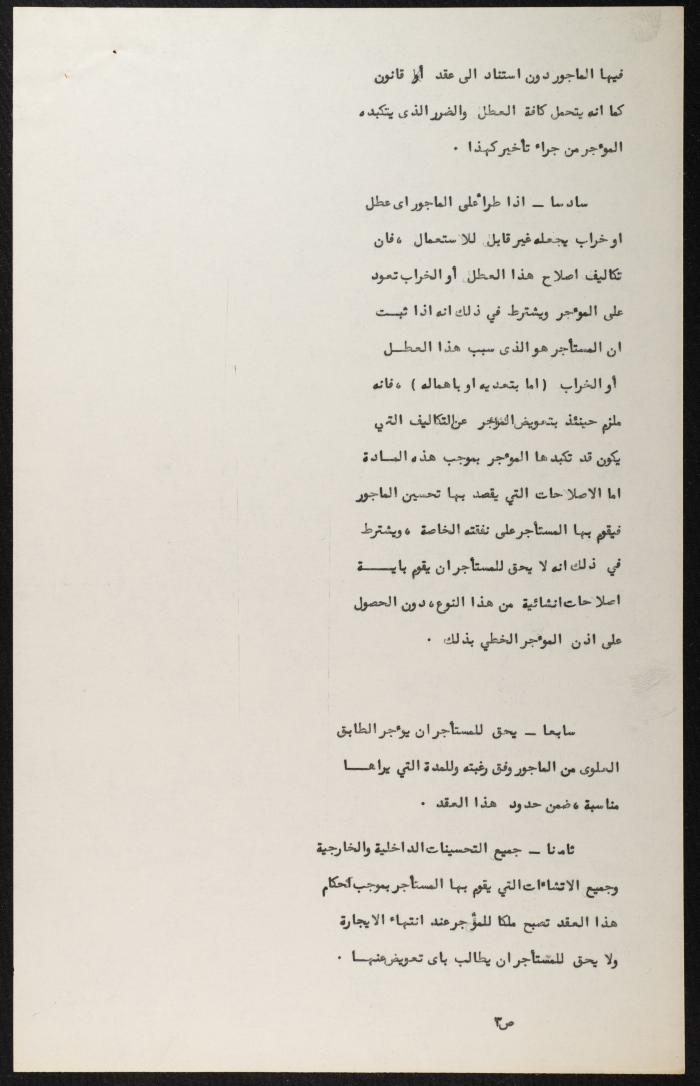 فيها الماجور دون استناد الى عقد أو قانون
كما انه يتحمل كافة العطل والضرر الذى يتكبده
الموءجر من جراء تأخير كهذا .
سادسا ــ اذا طرأ على الماجور اى عطل
او خراب يجعله غير قابل للاستعمال ، فان
تكاليف اصلاح هذا العطل أو الخراب تعود
على الموءجر ويشترط في ذلك انه اذا ثبــت
ان المستأجر هو الذى سبب هذا العطــل
أو الخراب ( اما بتعديه او باهماله ) ، فانه
ملزم حينئذ بتعويض الموءجر عن التكاليف التي
يكون قد تكبدها الموءجر بموجب هذه المــادة
اما الاصلاحات التي يقصد بها تحسين الماجور
فيقوم بها المستأجر على نفقته الخاصة ، ويشترط
في ذلك انه لا يحق للمستأجر ان يقوم بايــــة
اصلاحات انشائية من هذا النوع ، دون الحصول
على اذن الموءجر الخطي بذلك .
سابعا ــ يحق للمستأجر ان يوءجر الطابق
العلوى من الماجور وفق رغبته وللمدة التي يراهــا
مناسبة ، ضمن حدود هذا العقد .
ثامنا ــ جميع التحسينات الداخلية والخارجية
وجميع الانشاءات التي يقوم بها المستأجر بموجب احكام
هذا العقد تصبح ملكا للمؤجر عند انتهاء الايجارة
ولا يحق للمستأجر ان يطالب باى تعويض عنهــا .
ص٣